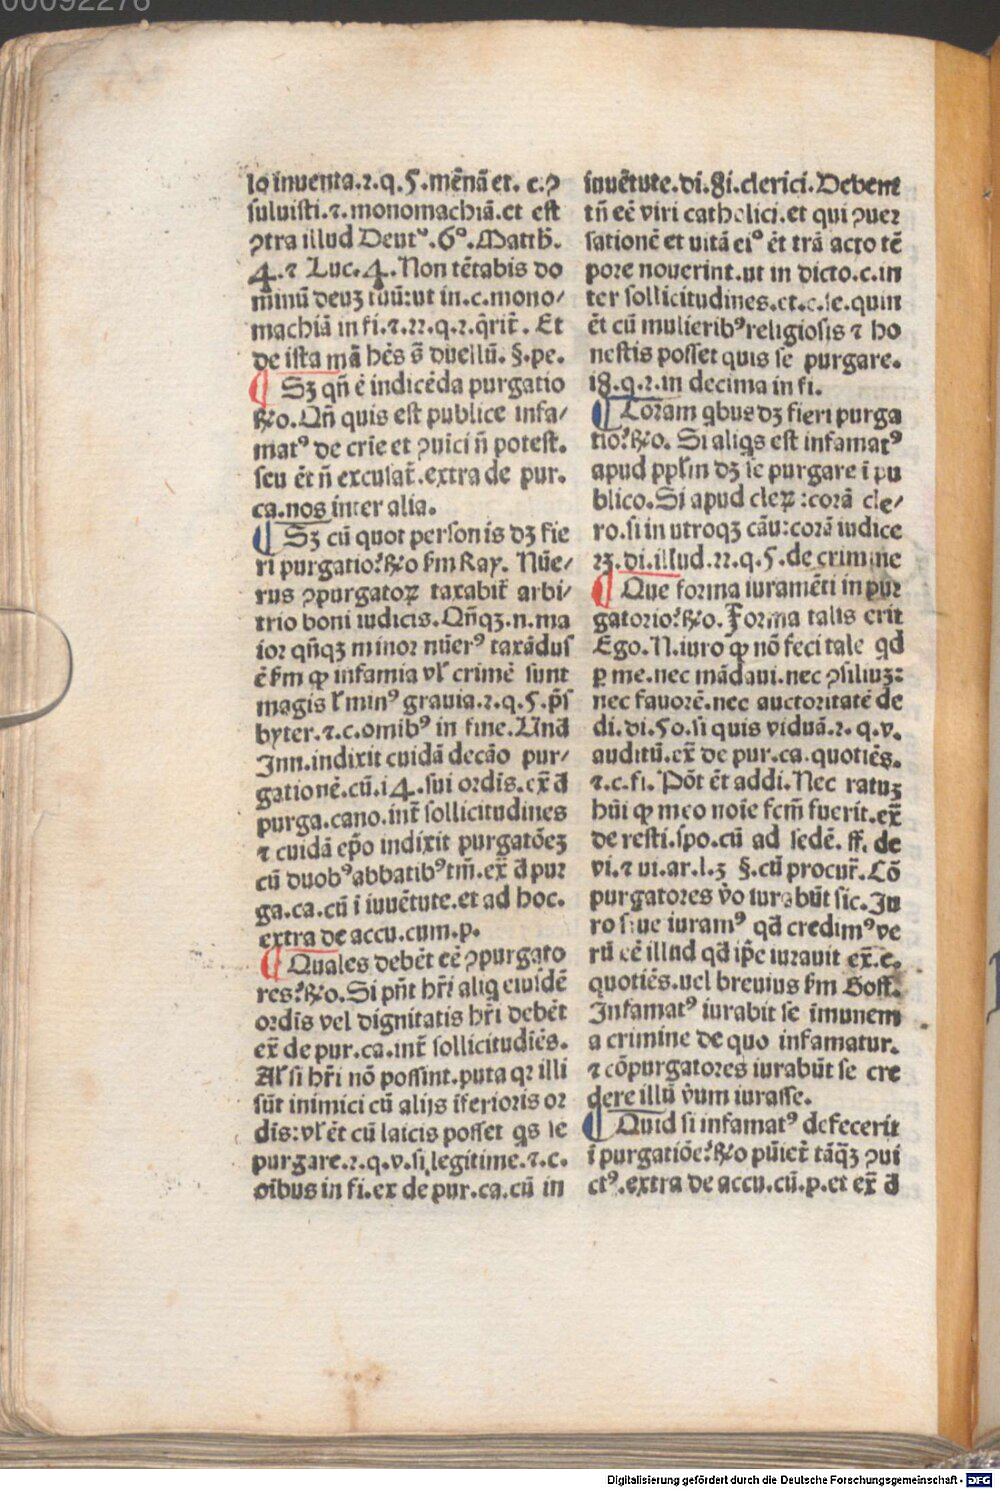 00092276
lo inuenta.2.q.5.mēnā et. c.ꝯ
suluisti.⁊.monomachiā.et est
ꝯtra illud Deutº.6º.Matth̄.
4.⁊ Luc.4.Non tētabis do
minū deuꝫ tuū:ut in.c.mono/
machiā in fi.⁊.22.q.2.q̄rit̄. Et
de ista mā hēs s̄ duellū. §.pe.
¶ Sꝫ qn̄ ē indicēda purgatio
Rº. Qn̄ quis est publice infa/
matꝰ de crīe et ꝯuici n̄ potest.
seu ēt n̄ excusat̄.extra de pur.
ca.nos inter alia.
¶ Sꝫ cū quot personis dꝫ fie
ri purgatio? Rº ẜm Ray. Nūe/
rus ꝯpurgatoꝝ taxabit̄ arbi/
trio boni iudicis. Qn̄qꝫ.n.ma
ior qn̄qꝫ minor nūerꝰ taxādus
ē ẜm ꝙ infamia vl̄ crimē sunt
magis l̄ minꝰ grauia.2.q.5.p̄s
byter.⁊.c.omībꝰ in fine. Und̄
Inn.indixit cuidā decāo pur/
gationē.cū.i4.sui ordīs.ex̄ d̄
purga.cano.int̄ sollicitudines
⁊ cuidā ep̄o indixit purgatōeꝫ
cū duobꝰ abbatibꝰ tm̄.ex̄ d̄ pur
ga.ca.cū i iuuētute.et ad hoc.
extra de accu.cum.p.
¶ Quales debēt eē ꝯpurgato
res? Rº. Si pn̄t hr̄i aliq̄ eiusdē
ordīs vel dignitatis hr̄i debēt
ex̄ de pur.ca.int̄ sollicitudīēs.
Al̄ si hr̄i nō possint.puta qꝛ illi
sūt inimici cū alijs īferioris or
dīs:vl̄ ēt cū laicis posset q̄s se
purgare.2.q.v.si legitime.⁊.c.
oībus in fi.ex de pur.ca.cū in
iuuētute.di.8i.clerici.Debent
tn̄ eē viri catholici.et qui ꝯuer
sationē et uitā eiº ēt trā acto tē
pore nouerint.ut in dicto.c.in
ter sollicitudines.et.c.se.quin
ēt cū mulieribꝰ religiosis ⁊ ho
nestis posset quis se purgare.
i8.q.2.in decima in fi.
¶ Coram q̄bus dꝫ fieri purga
tio? Rº. Si aliq̄s est infamatꝰ
apud pp̄lm dꝫ se purgare ī pu
blico. Si apud cleꝝ:corā cle/
ro.si in utroqꝫ cāu:corā iudice
2ꝫ.di.illud.22.q.5.de crimine
¶ Que forma iuramēti in pur
gatorio? Rº. Forma talis erit
Ego. N. iuro ꝙ nō feci tale qd̄
ꝑ me.nec mādaui.nec ꝯsiliuꝫ:
nec fauorē.nec auctoritatē de
di.di.50.si quis viduā.2.q.v.
auditū.ex̄ de pur.ca.quotiēs.
⁊.c.fi. Pōt ēt addi. Nec ratuꝫ
hūi ꝙ meo noīe fcm̄ fuerit.ex̄
de resti.spo.cū ad sedē. ff. de
vi.⁊ ui.ar.l.3 §.cū procur̄. Cō
purgatores v̊o iurabūt sic. Iu
ro siue iuramꝰ qd̄ credimꝰ ve
rū eē illud qd̄ ip̄e iurauit ex̄.e.
quotiēs.uel breuius ẜm Goff.
Infamatꝰ iurabit se īmunem
a crimine de quo infamatur.
⁊ cōpurgatores iurabūt se cre
dere illū v̊um iurasse.
¶ Quid si infamatꝰ defecerit
ī purgatiōe? Rº pūiet̄ tāq̄ꝫ ꝯui
ctꝰ.extra de accu.cū.p.et ex̄ d̄
Digitalisierung gefördert durch die Deutsche Forschungsgemeinschaft - DFG